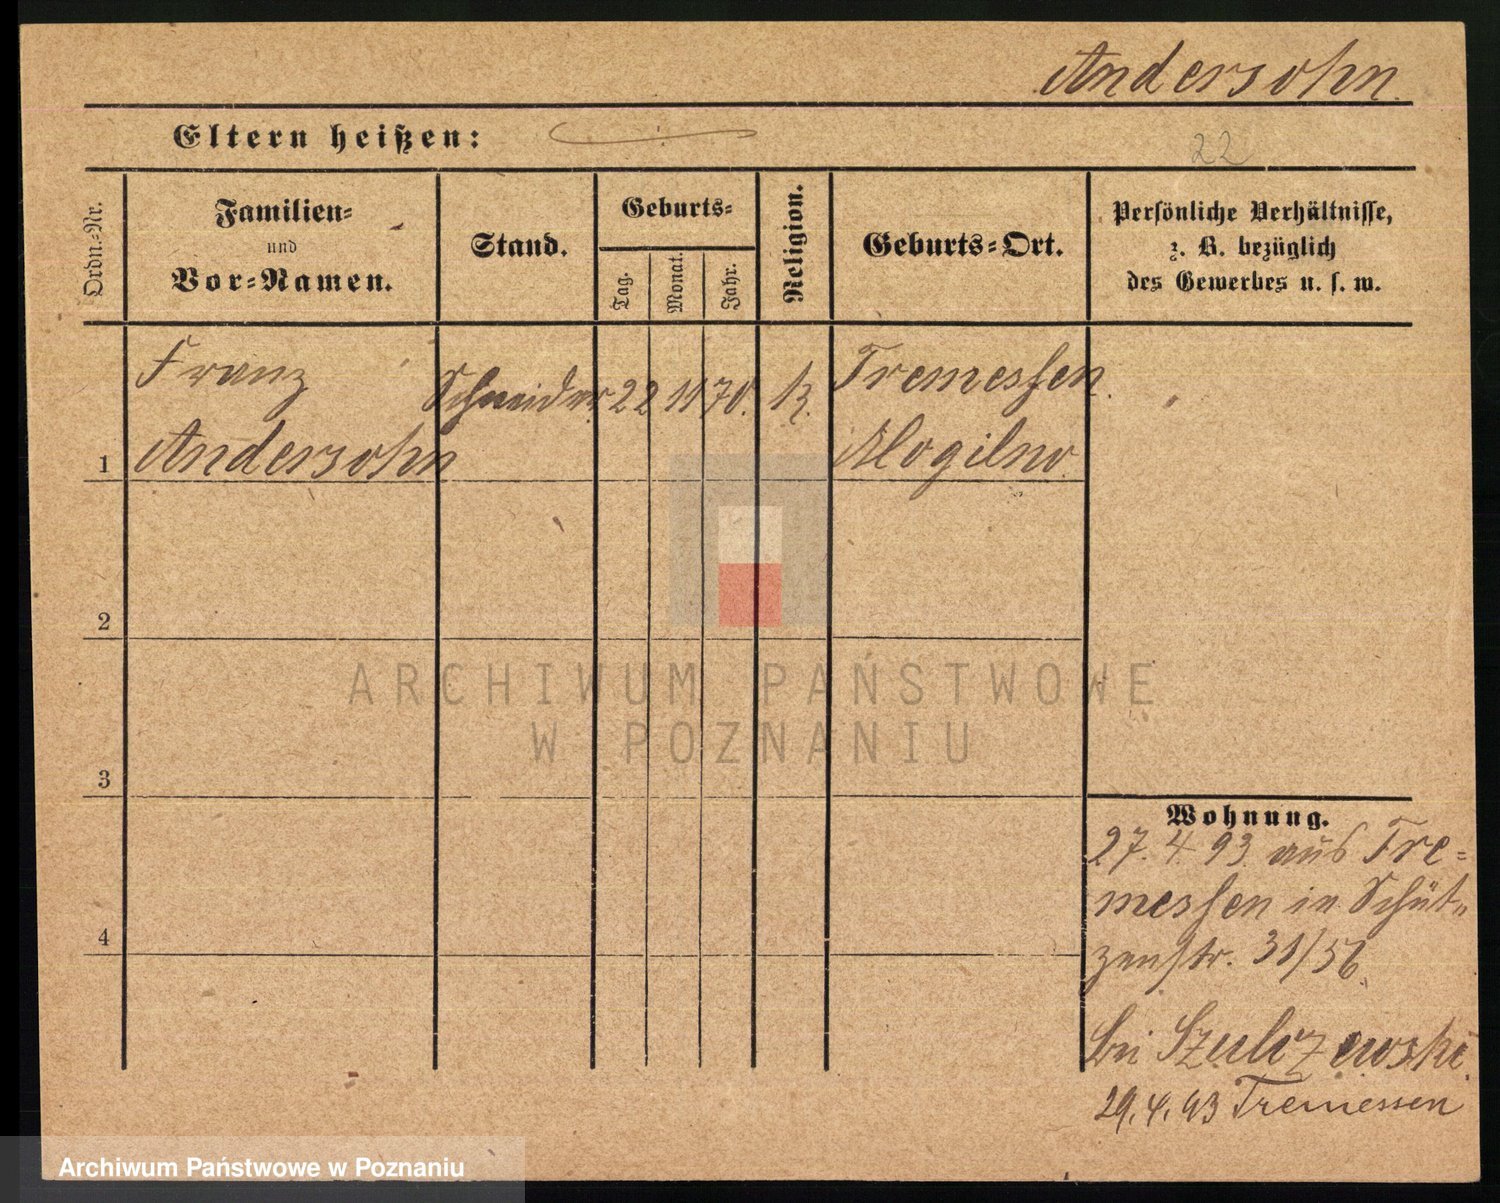 Andersohn.
Eltern heißen:
22
Ordn.-Nr.
Familien-
und
Vor-Namen.
Stand.
Geburts-
Tag.
Monat.
Jahr.
Religion.
Geburts-Ort.
Persönliche Verhältnisse,
z. B. bezüglich
des Gewerbes u. s. w.
Franz
Andersohn
Schneider
22
11
70.
K.
Tremessen.
Mogilno.
1
2
3
4
Wohnung.
27. 4. 93. aus Tre-
messen in Schüt-
zenstr. 31/36.
bei Szulczewski.
29. 4. 93 Tremessen
ARCHIWUM PAŃSTWOWE
W POZNANIU
Archiwum Państwowe w Poznaniu